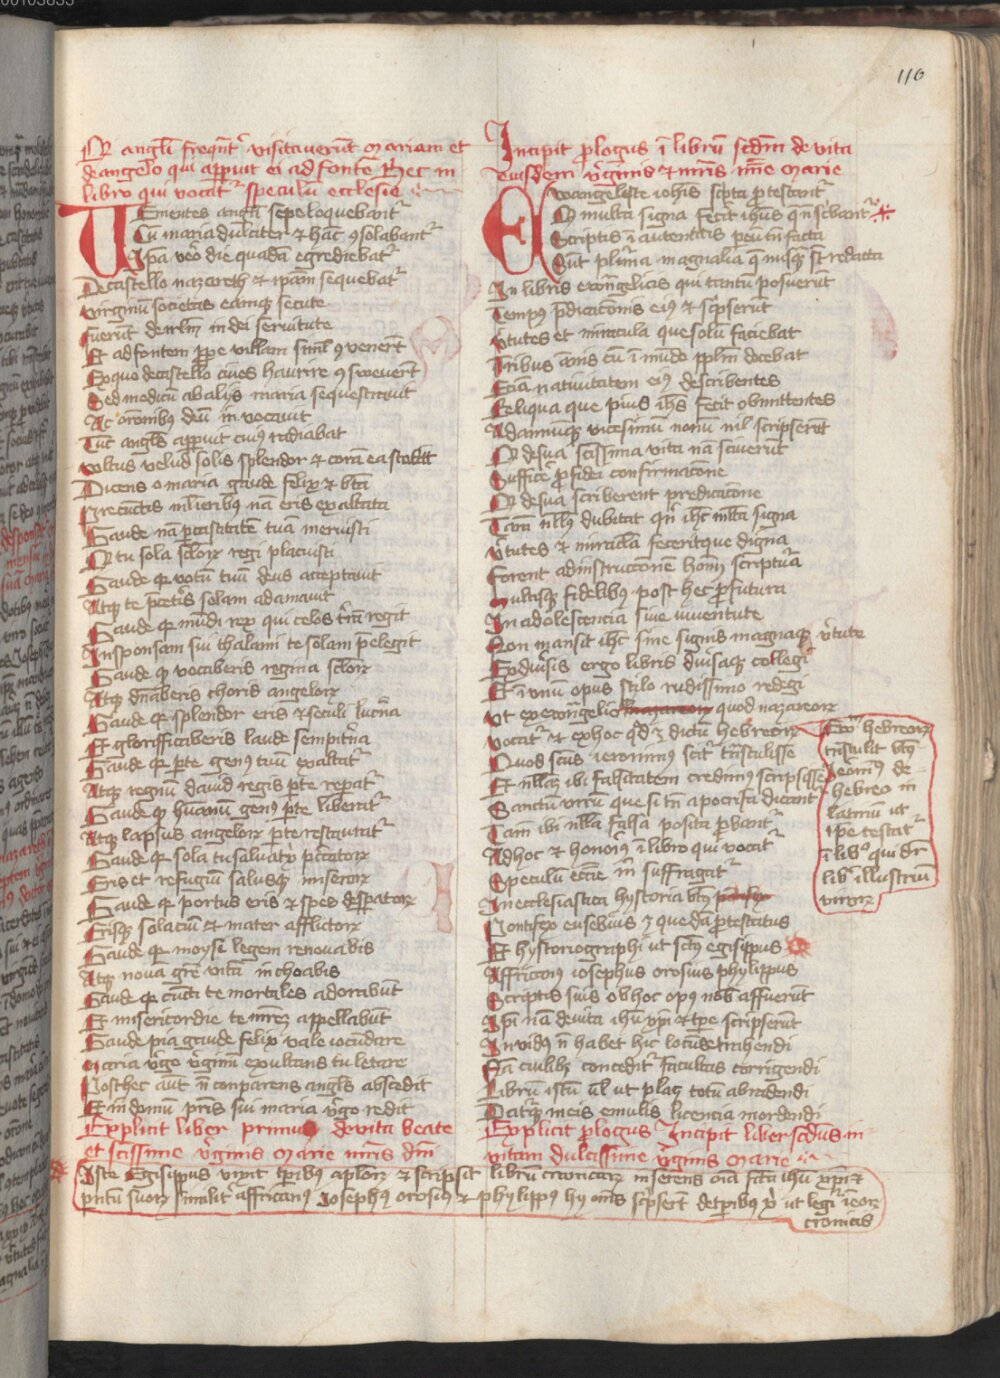 116
Qr angli freqnt visitaverut Mariam et
de angelo qui apparuit ei ad fonte Hec in
libro qui vocat speculu ecclesie
Uementes angli sepe loquebant
Cu maria dulciter et hac 9solabant
Ipa vero die quada egrediebat
De castello nazareth et ipam sequebat
virginu societas eamque secute
fuerut de irlm in dei servitute
Et ad fontem prope villam simul 9venert
Ex quo de castello cives haurire 9swevert
Sed modicu ab aliis maria sequestravit
Ac oronibus deu invocavit
Tuc angls apparuit cuius radiabat
vultus velud solis splendor et cora ea stabat
Dicens o maria gaude felix et bta
Pre cunctis mlieribus nam eris exaltata
Gaude nam p castitate tua meruisti
Qr tu sola sclorum regi placuisti
Gaude qr votu tuu deus acceptavit
Atque te p ceteris solam adamavit
Gaude qr mundi rex qui celos tra regit
In sponsam sui thalami te solam pelegit
Gaude qr vocaberis regina sclorum
Atque dnaberis choris angelorum
Gaude qr splendor eris et seculi lucna
Et glorificaberis laude sempitna
Gaude qr p te genus tuu exaltat
Atque regnu david regis p te repat
Gaude qr humanu genus p te liberat
Atque lapsus angelorum p te restaurat
Gaude qr sola tu salvatrix pctatorum
Eris et refugium salusque miserorum
Gaude qr portus eris et spes desperatorum
Erisque solaciu et mater afflictorum
Gaude qr moysi legem renovabis
Atque nova gre vita inchoabis
Gaude qr cuncti te mortales adorabut
Et misericordie te mrem appellabut
Gaude pia gaude felix vale iocudare
Maria virgo virginu exultans tu letare
Post hec aut n conparens angls abscedit
Et in domu pris sui maria virgo redit
Explicit liber primus de vita beate
et scissime virginis Marie mris dni
Incipit plogus i libru scdm de vita
eiusdem virginis et mris ihu Marie
Ewangeliste iohis scpta ptestant
Qr multa signa fecit ihus q n scbant
Scriptis i autenticis pcu tn facta
Sut plima magnalia q nusq st redacta
In libris ewangelicis qui tantu posuerut
Tempus pdicacionis eius et scpserut
virtutes et miracula que solu faciebat
Tribus annis cu i mudo pplm docebat
Etia nativitatem eius describentes
Reliqua que pius ihs fecit obmittentes
Ad annuque vicesimu nonu nil scripserut
Qr de sua scissima vita nam sciverut
Suffice p fidei confirmacione
Qr de sua scriberent predicacione
Tam nllus dubitat qn ihc mlta signa
virtutes et miracla feceritque digna
forent ad instruccione hoim scriptura
Multisque fidelibus post hec pfutura
In adolescencia sive iuventute
Non mansit ihc sine signis magnaque virtute
Ex diversis ergo libris diversaque collegi
Et i unu opus stilo rudissimo redegi
ut ex ewangelio quod nazareorum
vocat et ex hoc qd est dictu hebreorum
Quod scus ieronimus scit tnstulisse
Et nullam ibi falsitatem credimus scripsisse
Sanctu viru que si tn apocrifa dicant
Tam ibi nlla falsa posita pbant
Ad hoc et honorius i libro qui vocat
Speculu eccie m suffragat
In ecclesiastica hystoria bts
Pontifex eusebius est queda ptestatus
Et hystoriographi ut scs egisippus
Affricanus iosephus orosius phylippus
Scriptis suis ob hoc opus nob affuerut
Ipi nam de vita ihu xpi et tpe scripserut
Invidus n habet hic locu detrahendi
Na cuilibet concedit facultas corrigendi
Libru istu vl ut placet totu abradendi
Daturque meis emulis licencia mordendi
Explicit plogus Incipit liber scdus in
vitam dulcissime virginis Marie
Ew hebreorum
tnstulit bts
Ieronimus de
hebreo in
latinu ut
ipe testat
i libro qui dr
lib illustriu
virorum
Iste Egisippus vixit tpribus aplorum et scripsit libru cronicarum inserens oia fcta ihu xpi et
pntu suorum similit affricanus Iosephus orosius et phylippus hy oms scpsert de tpribus xpi ut legit i eorum
cronicis